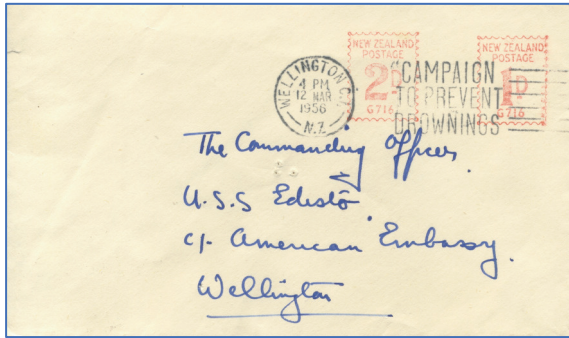 NEW ZEALAND
POSTAGE
2D
G716
NEW ZEALAND
POSTAGE
1D
G716
WELLINGTON C.1
4 PM
12 MAR
1956
N.Z.
"CAMPAIGN
TO PREVENT
DROWNINGS
The Commanding Officer
U.S.S Edisto
c/- American Embassy.
Wellington